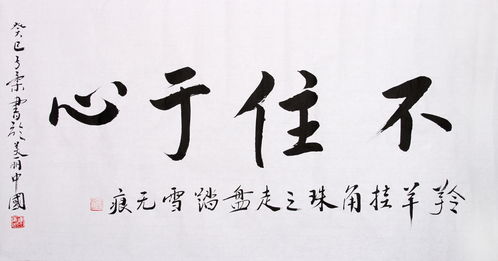 不住于心
羚羊挂角珠之走盘踏雪无痕
癸巳子叶書於美丽中國